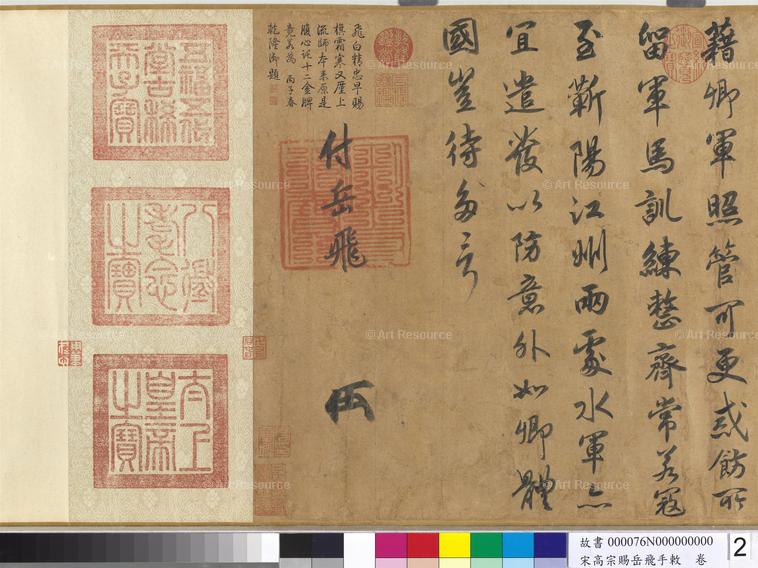 藉卿軍照管可更戒飭所
留軍馬訓練整齊常若寇
至蘄陽江州兩處水軍亦
宜遣發以防意外如卿體
國豈待多言
付岳飛
飛白精忠早賜
旗霜寒又厪上
流師本來原是
腹心託十二金牌
竟若為 丙子春
乾隆御題
五福五代
堂古稀
天子寶
八徵
耄念
之寶
太上
皇帝
之寶
© Art Resource
© Art Resource
© Art Resource
© Art Resource
© Art Resource
© Art Resource
© Art Resource
© Art Resource
© Art Resource
故書 000076N000000000
宋高宗賜岳飛手敕 卷
2